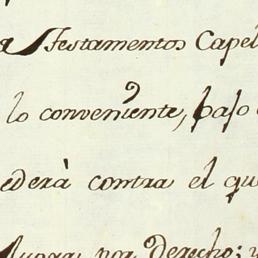 a Testamentos Capel
lo conveniente, bajo
ederà contra el qu
por derecho;